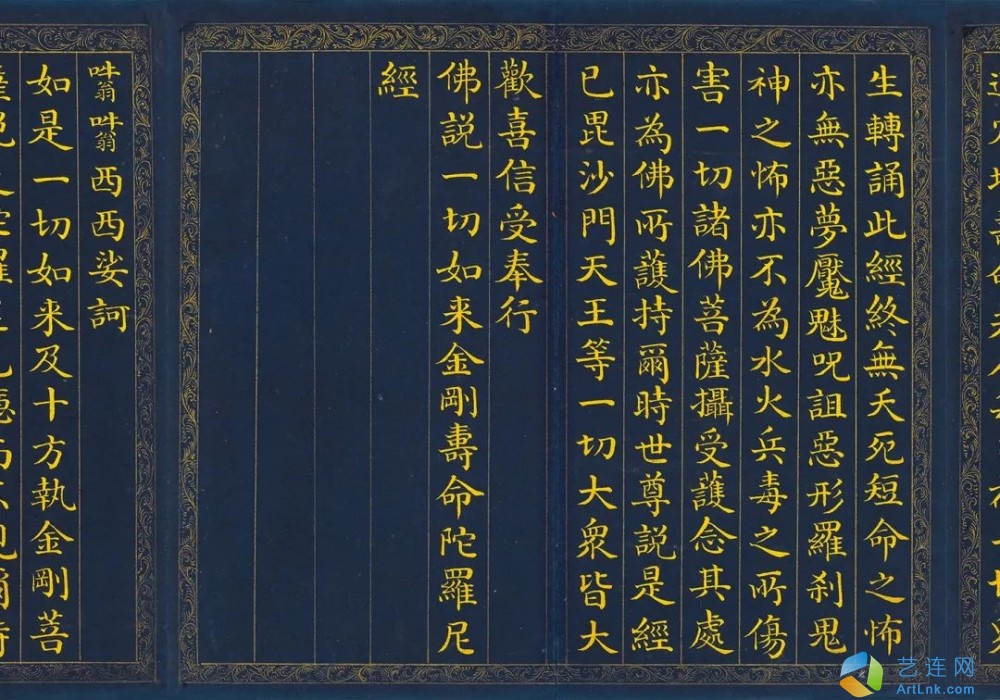 生轉誦此經終無夭死短命之怖
亦無惡夢魘魅呪詛惡形羅刹鬼
神之怖亦不為水火兵毒之所傷
害一切諸佛菩薩攝受護念其處
亦為佛所護持爾時世尊説是經
已毘沙門天王等一切大衆皆大
歡喜信受奉行
佛説一切如来金剛壽命陀羅尼
經
吽翁吽翁西西娑訶
如是一切如来及十方執金剛菩
艺连网
ArtLnk.com